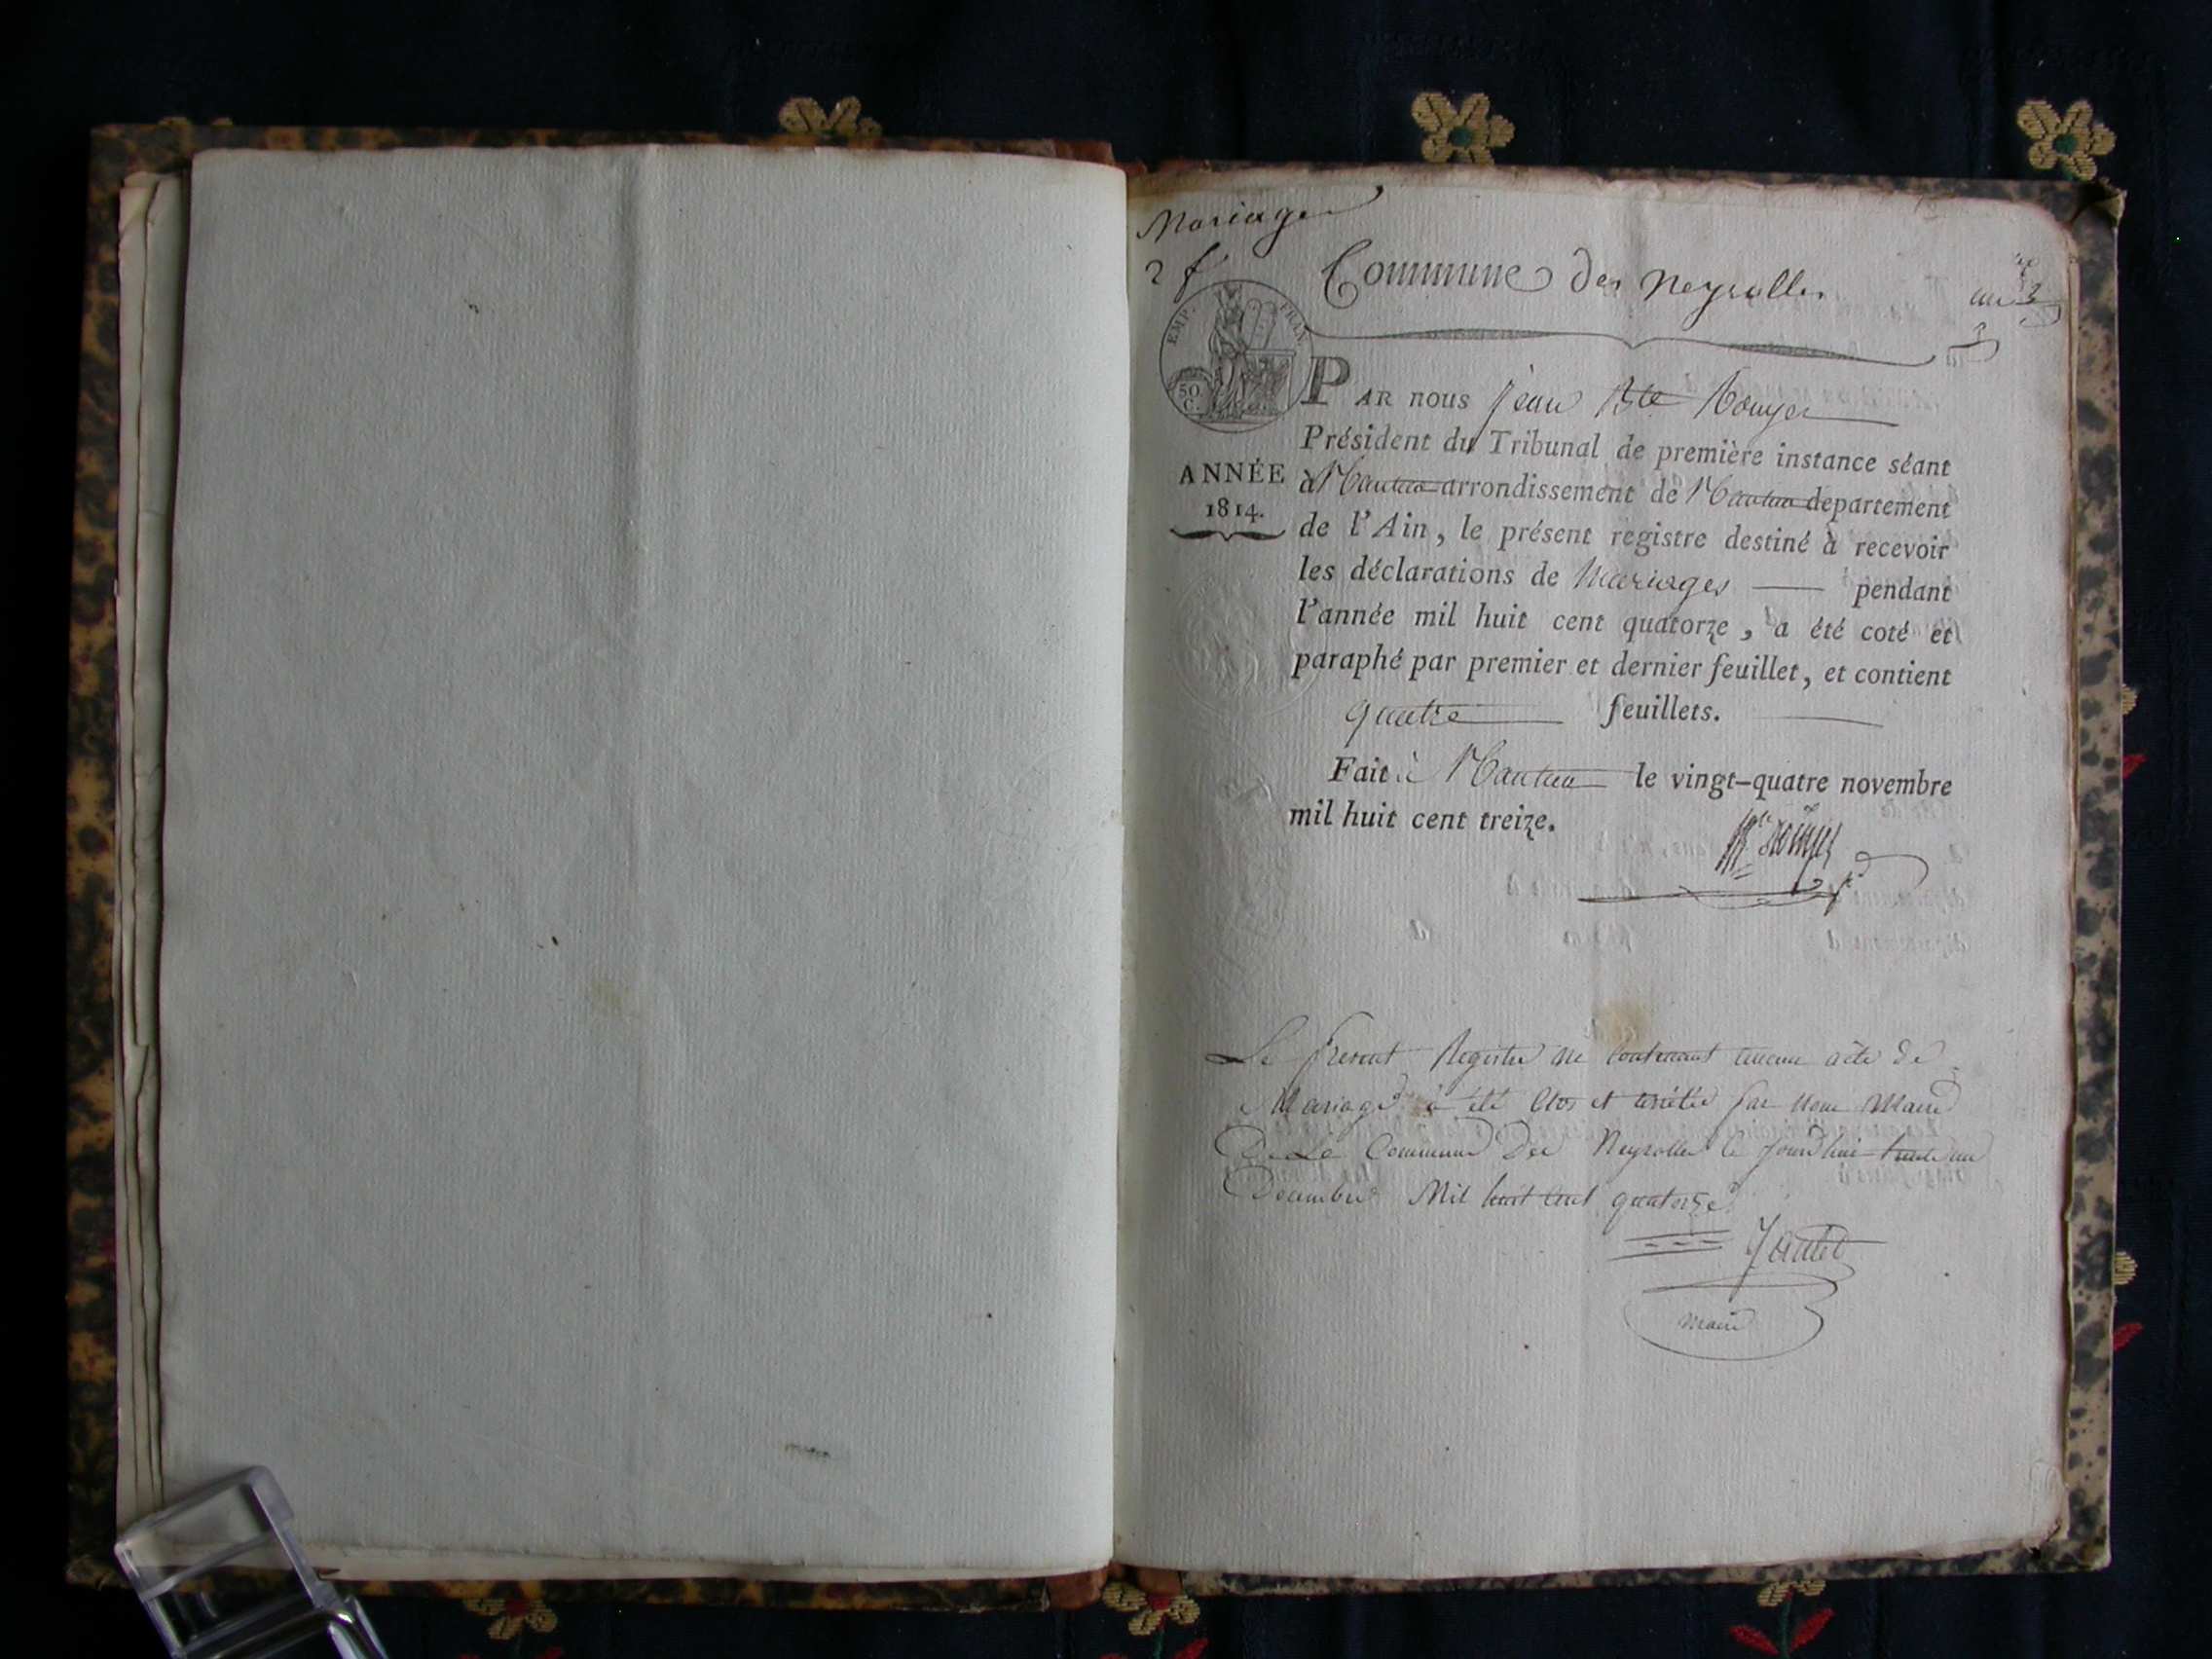 Mariages
2 f
Commune des Neyrolles
EMP. FRAN.
50.
C.
PAR nous Jean Bte Rouyer
Président du Tribunal de première instance séant
ANNÉE
1814.
à Nantua arrondissement de Nantua département
de l'Ain, le présent registre destiné à recevoir
les déclarations de Mariages — pendant
l'année mil huit cent quatorze, a été coté et
paraphé par premier et dernier feuillet, et contient
quatre feuillets.
Fait à Nantua le vingt-quatre novembre
mil huit cent treize.
Le present Registre ne contenant aucun acte de
Mariage à été Clos et arrêtée par Nous Maire
De La Commune Des Neyrolles le jourd'hui trente un
Decembre Mil huit Cent quatorze
maire